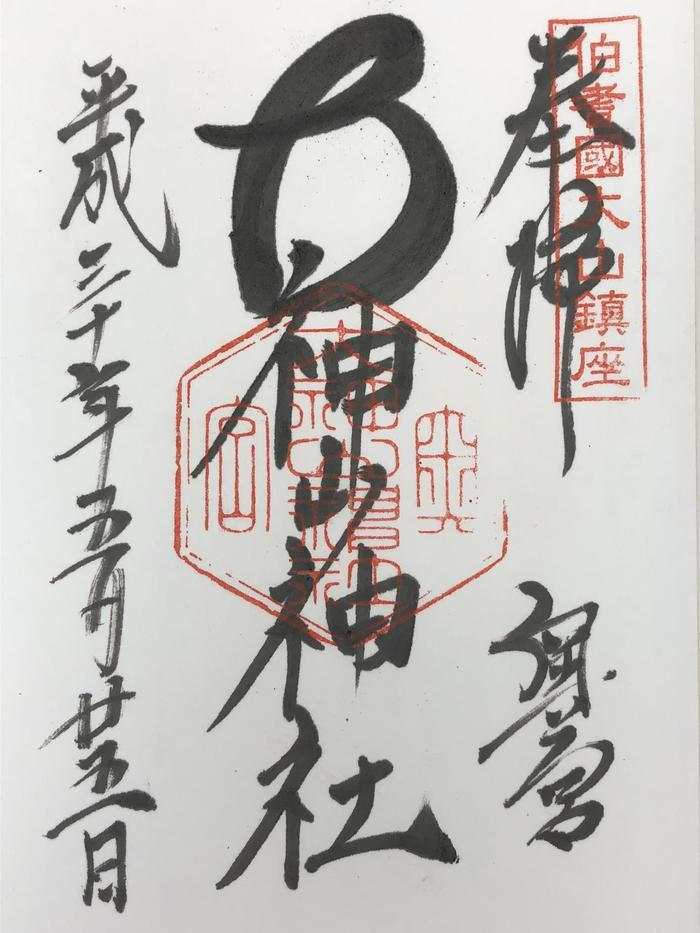 伯耆國大山鎮座
奉拝
奥宮
大神山神社
奥宮
平成三十年五月廿五日